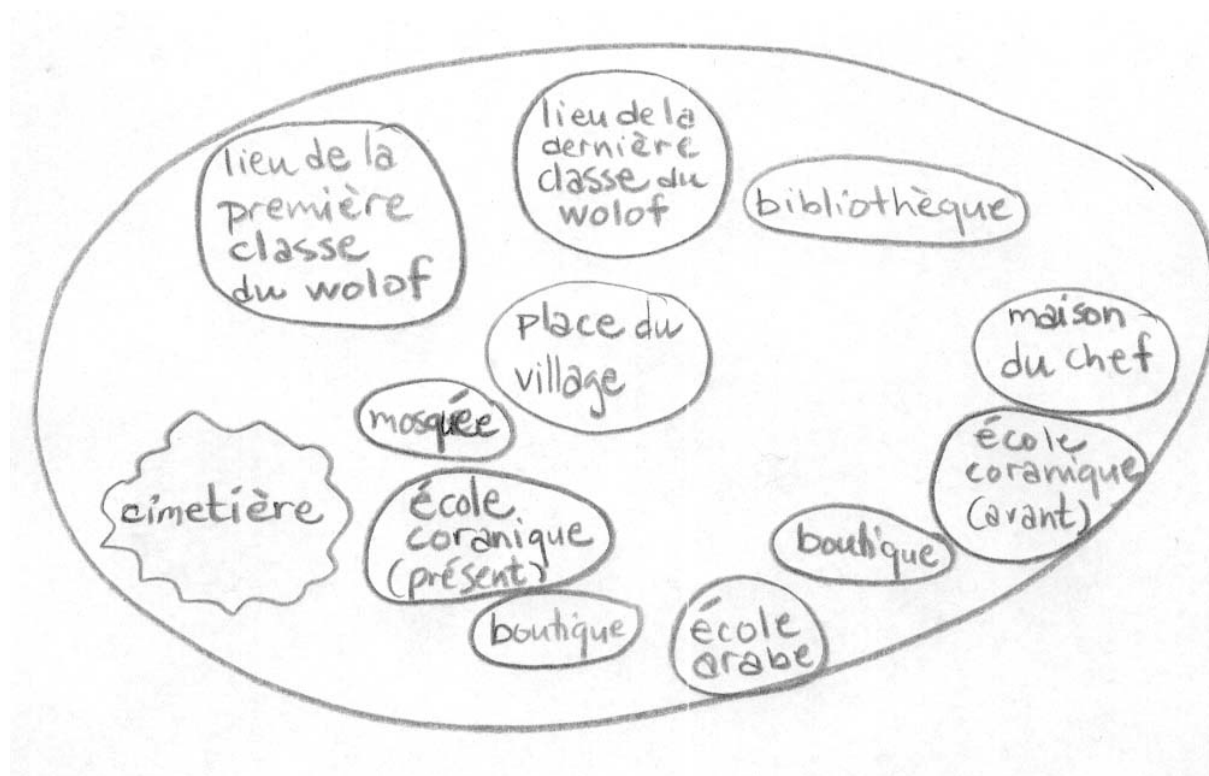 lieu de la
première
classe
du wolof
lieu de la
dernière
classe du
wolof
bibliothèque
place du
village
maison
du chef
mosquée
école
coranique
(avant)
cimetière
école
coranique
(présent)
boutique
boutique
école
arabe